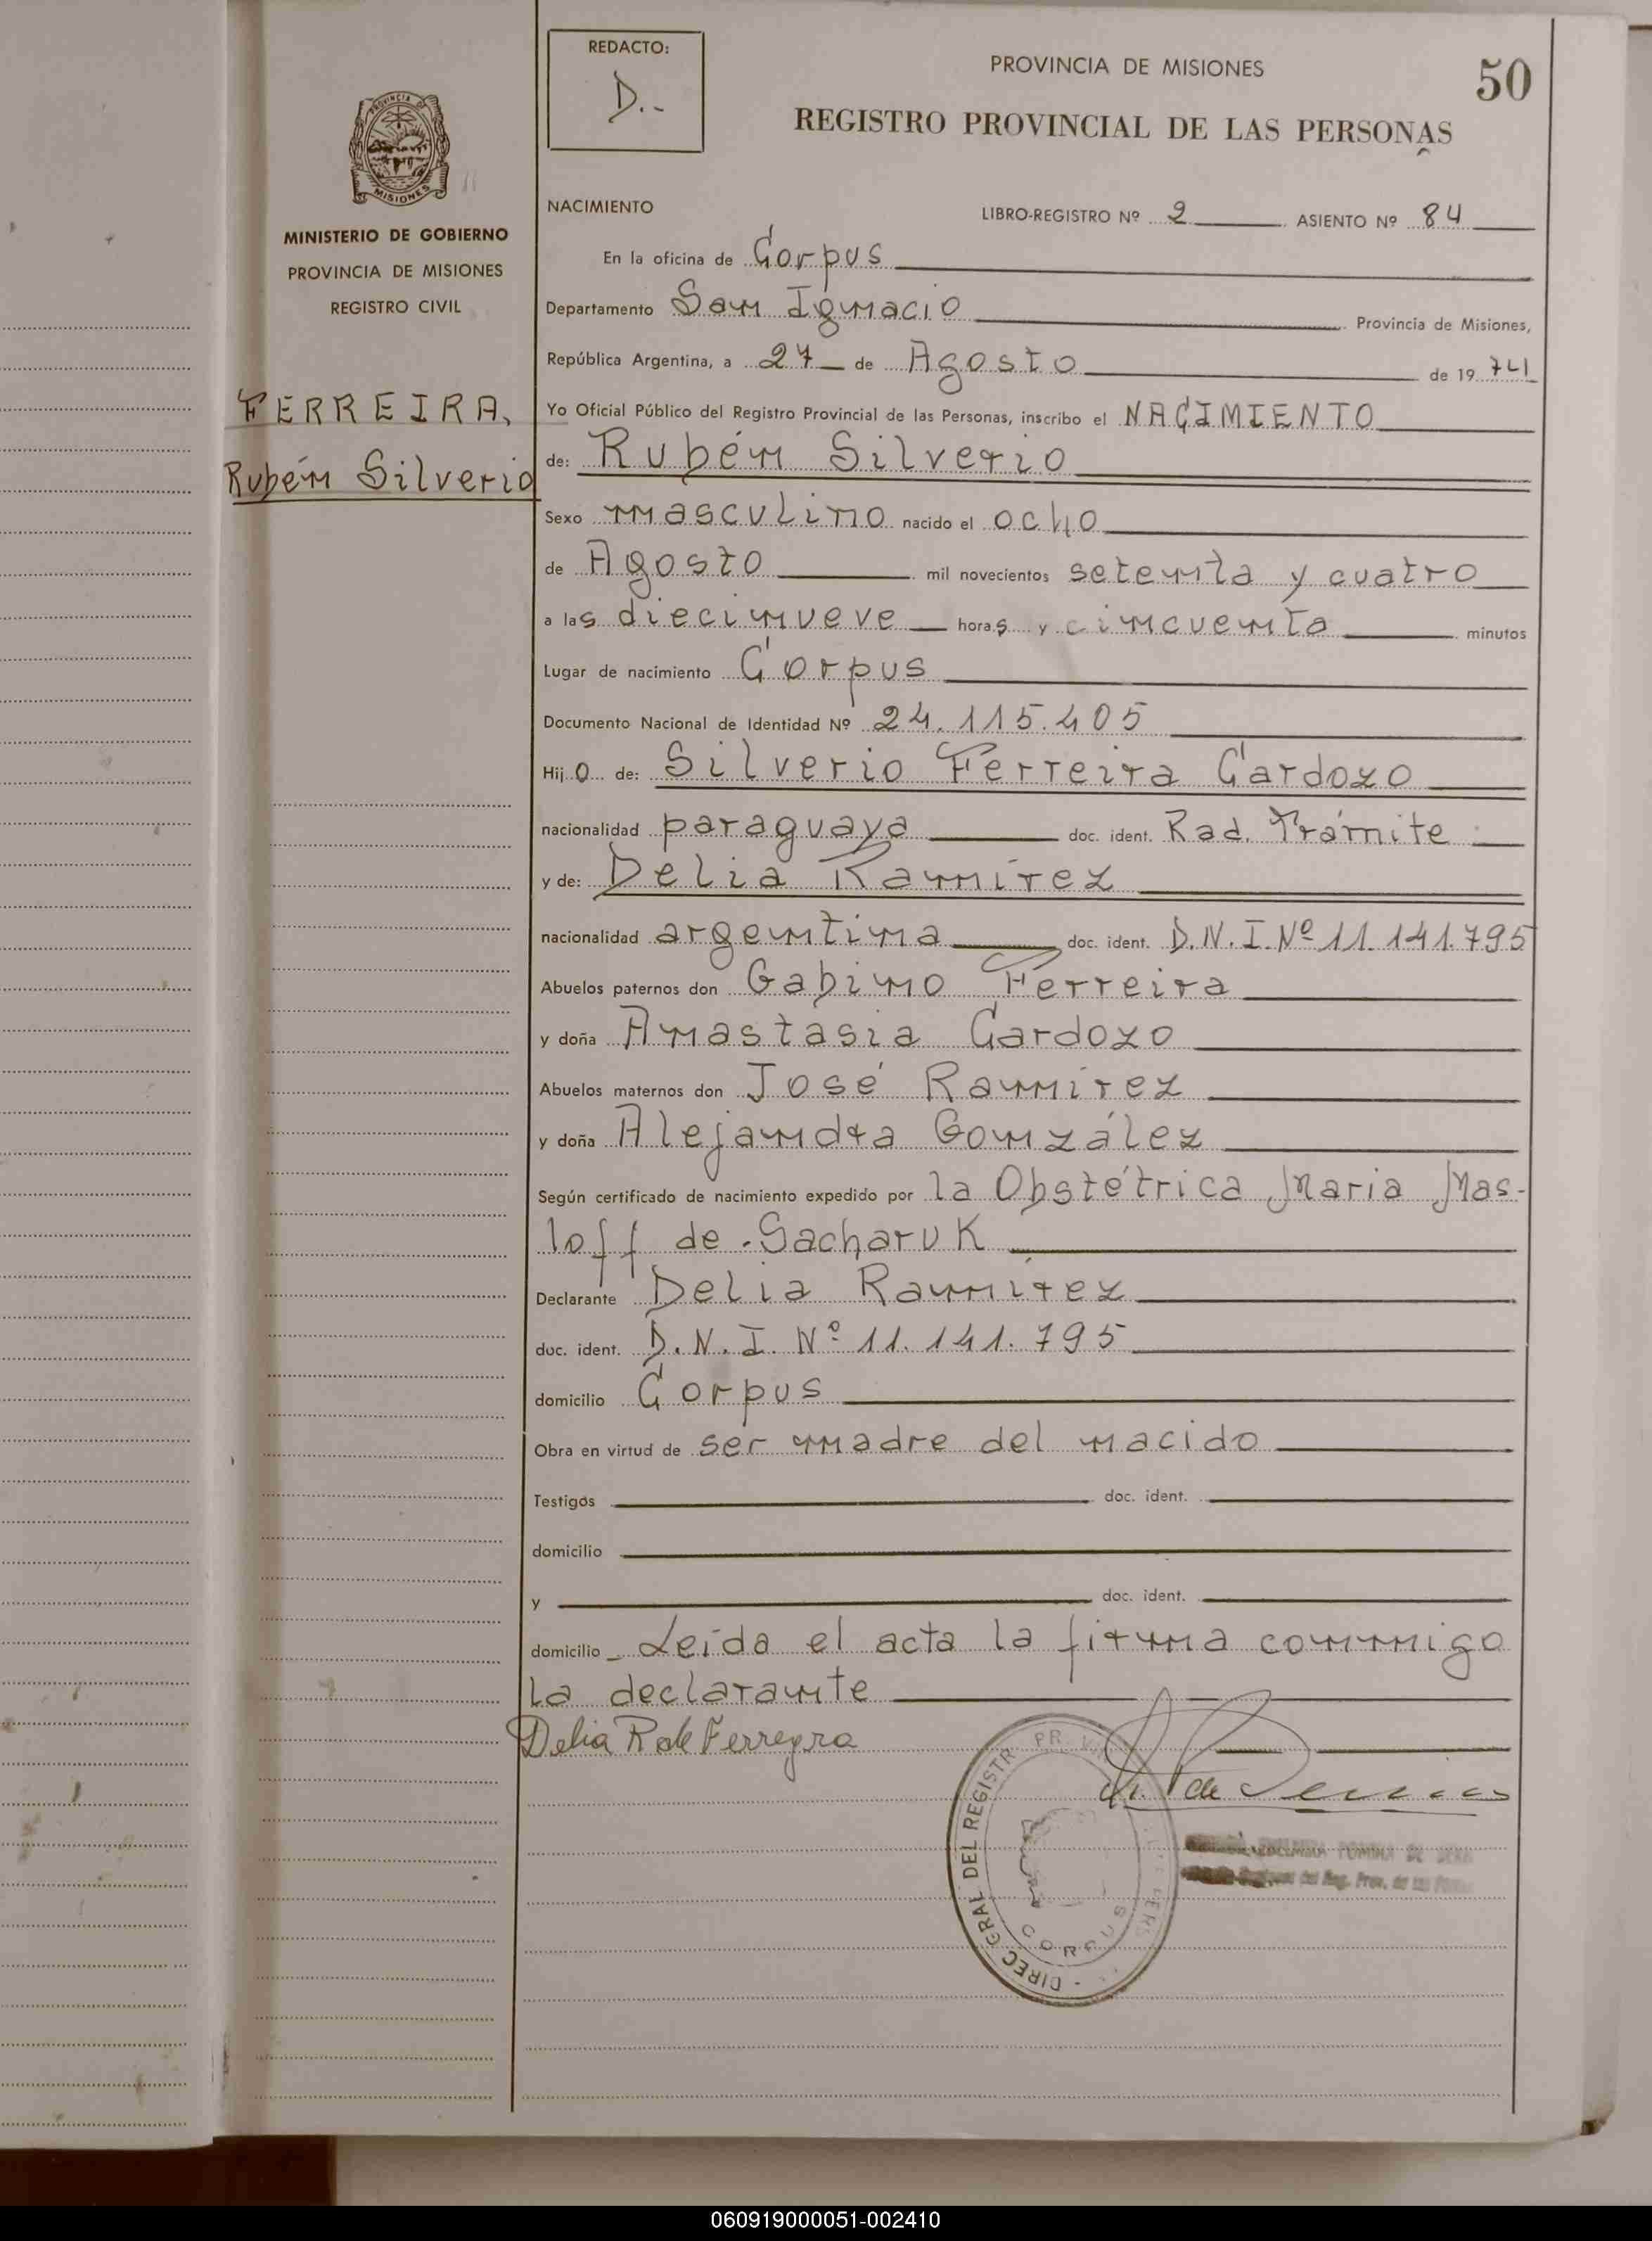 REDACTO:
D.-
PROVINCIA DE MISIONES
50
REGISTRO PROVINCIAL DE LAS PERSONAS
PROVINCIA DE
MISIONES
MINISTERIO DE GOBIERNO
PROVINCIA DE MISIONES
REGISTRO CIVIL
FERREIRA,
Rubén Silverio
NACIMIENTO LIBRO-REGISTRO Nº 2 ASIENTO Nº 84
En la oficina de Corpus
Departamento San Ignacio Provincia de Misiones,
República Argentina, a 27 de Agosto de 19 74
Yo Oficial Público del Registro Provincial de las Personas, inscribo el NACIMIENTO
de: Rubén Silverio
Sexo masculino nacido el ocho
de Agosto mil novecientos setenta y cuatro
a las diecinueve horas y cincuenta minutos
Lugar de nacimiento Corpus
Documento Nacional de Identidad Nº 24.115.405
Hijo de: Silverio Ferreira Cardozo
nacionalidad paraguaya doc. ident. Rad. Trámite
y de: Delia Ramírez
nacionalidad argentina doc. ident. D.N.I.Nº 11.141.795
Abuelos paternos don Gabino Ferreira
y doña Anastasia Cardozo
Abuelos maternos don José Ramírez
y doña Alejandra González
Según certificado de nacimiento expedido por la Obstétrica Maria Mas-
loff de Sacharuk
Declarante Delia Ramírez
doc. ident. D.N.I. Nº 11.141.795
domicilio Corpus
Obra en virtud de ser madre del nacido
Testigos doc. ident.
domicilio
y doc. ident.
domicilio Leída el acta la firma conmigo
la declarante
Delia R de Ferreyra
DIREC. GRAL DEL REGISTR
CORPUS
del Reg. Prov. de las
060919000051-002410